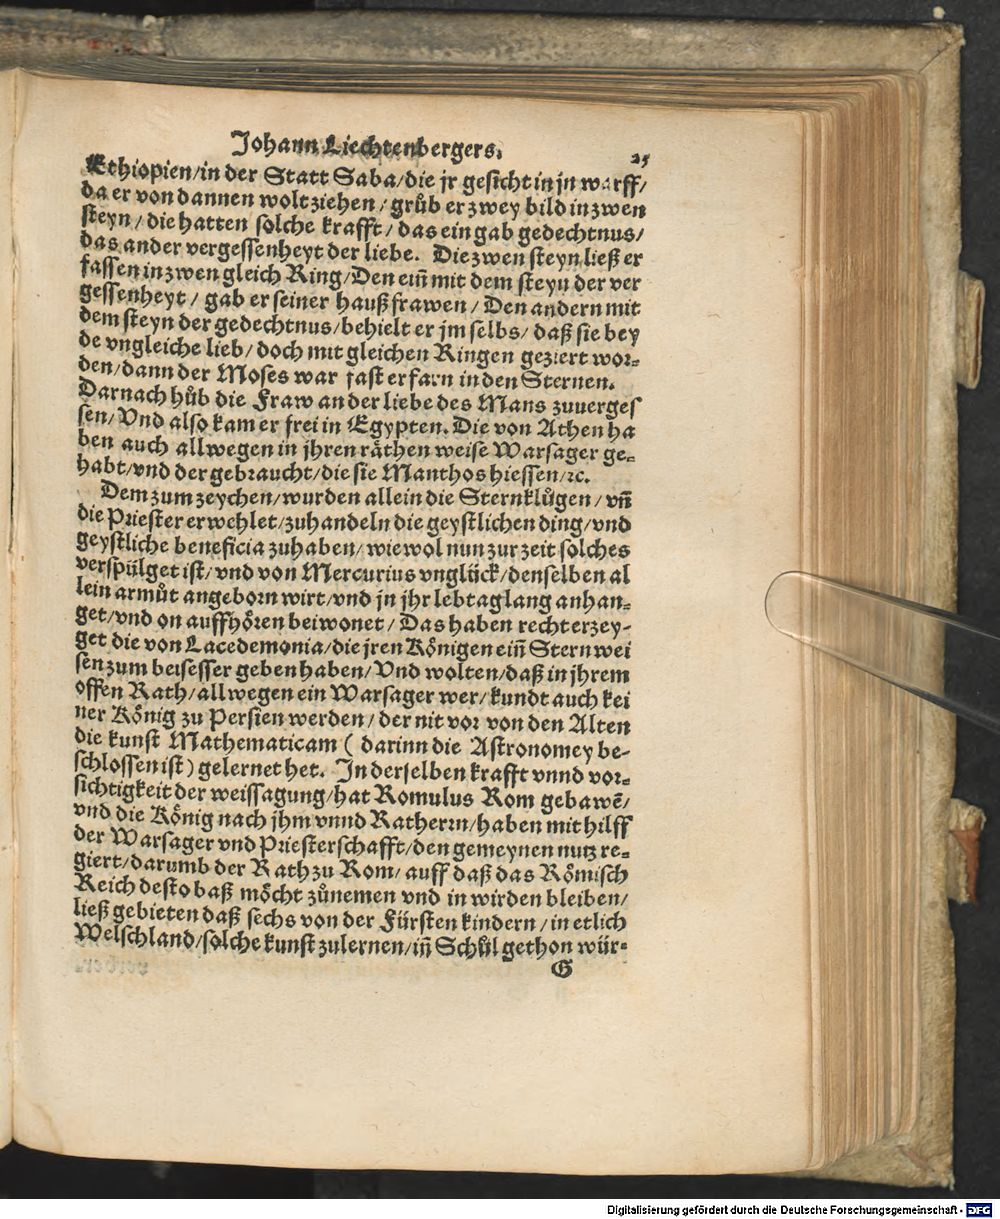 Johann Liechtenbergers.
25
Ethiopien/in der Statt Saba/die jr gesicht in jn warff/
da er von dannen wolt ziehen/grůb er zwey bild in zwen
steyn/die hatten solche krafft/das ein gab gedechtnus/
das ander vergessenheyt der liebe. Die zwen steyn ließ er
fassen in zwen gleich Ring/Den eiñ mit dem steyn der ver
gessenheyt/gab er seiner haußfrawen/Den andern mit
dem steyn der gedechtnus/behielt er jm selbs/daß sie bey
de vngleiche lieb/doch mit gleichen Ringen geziert wor⸗
den/dann der Moses war fast erfarn in den Sternen.
Darnach hůb die Fraw an der liebe des Mans zuuerges
sen/Vnd also kam er frei in Egypten. Die von Athen ha
ben auch allwegen in jhren räthen weise Warsager ge⸗
habt/vnd der gebraucht/die sie Manthos hiessen/ꝛc.
Dem zum zeychen/wurden allein die Sternklůgen/vñ
die Priester erwehlet/zuhandeln die geystlichen ding/vnd
geystliche beneficia zuhaben/wiewol nun zur zeit solches
verspülget ist/vnd von Mercurius vnglück/denselben al
lein armůt angeborn wirt/vnd jn jhr lebtag lang anhan⸗
get/vnd on auffhören beiwonet/Das haben recht erzey⸗
get die von Lacedemonia/die jren Königen eiñ Sternwei
sen zum beisesser geben haben/Vnd wolten/daß in jhrem
offen Rath/allwegen ein Warsager wer/kundt auch kei
ner König zu Persien werden/der nit vor von den Alten
die kunst Mathematicam (darinn die Astronomey be⸗
schlossen ist) gelernet het. In derselben krafft vnnd vor⸗
sichtigkeit der weissagung/hat Romulus Rom gebawẽ/
vnd die König nach jhm vnnd Ratherrn/haben mit hilff
der Warsager vnd Priesterschafft/den gemeynen nutz re⸗
giert/darumb der Rath zu Rom/auff daß das Römisch
Reich desto baß möcht zůnemen vnd in wirden bleiben/
ließ gebieten daß sechs von der Fürsten kindern/in etlich
Welschland/solche kunst zulernen/iñ Schůl gethon wür⸗
G
Digitalisierung gefördert durch die Deutsche Forschungsgemeinschaft - DFG